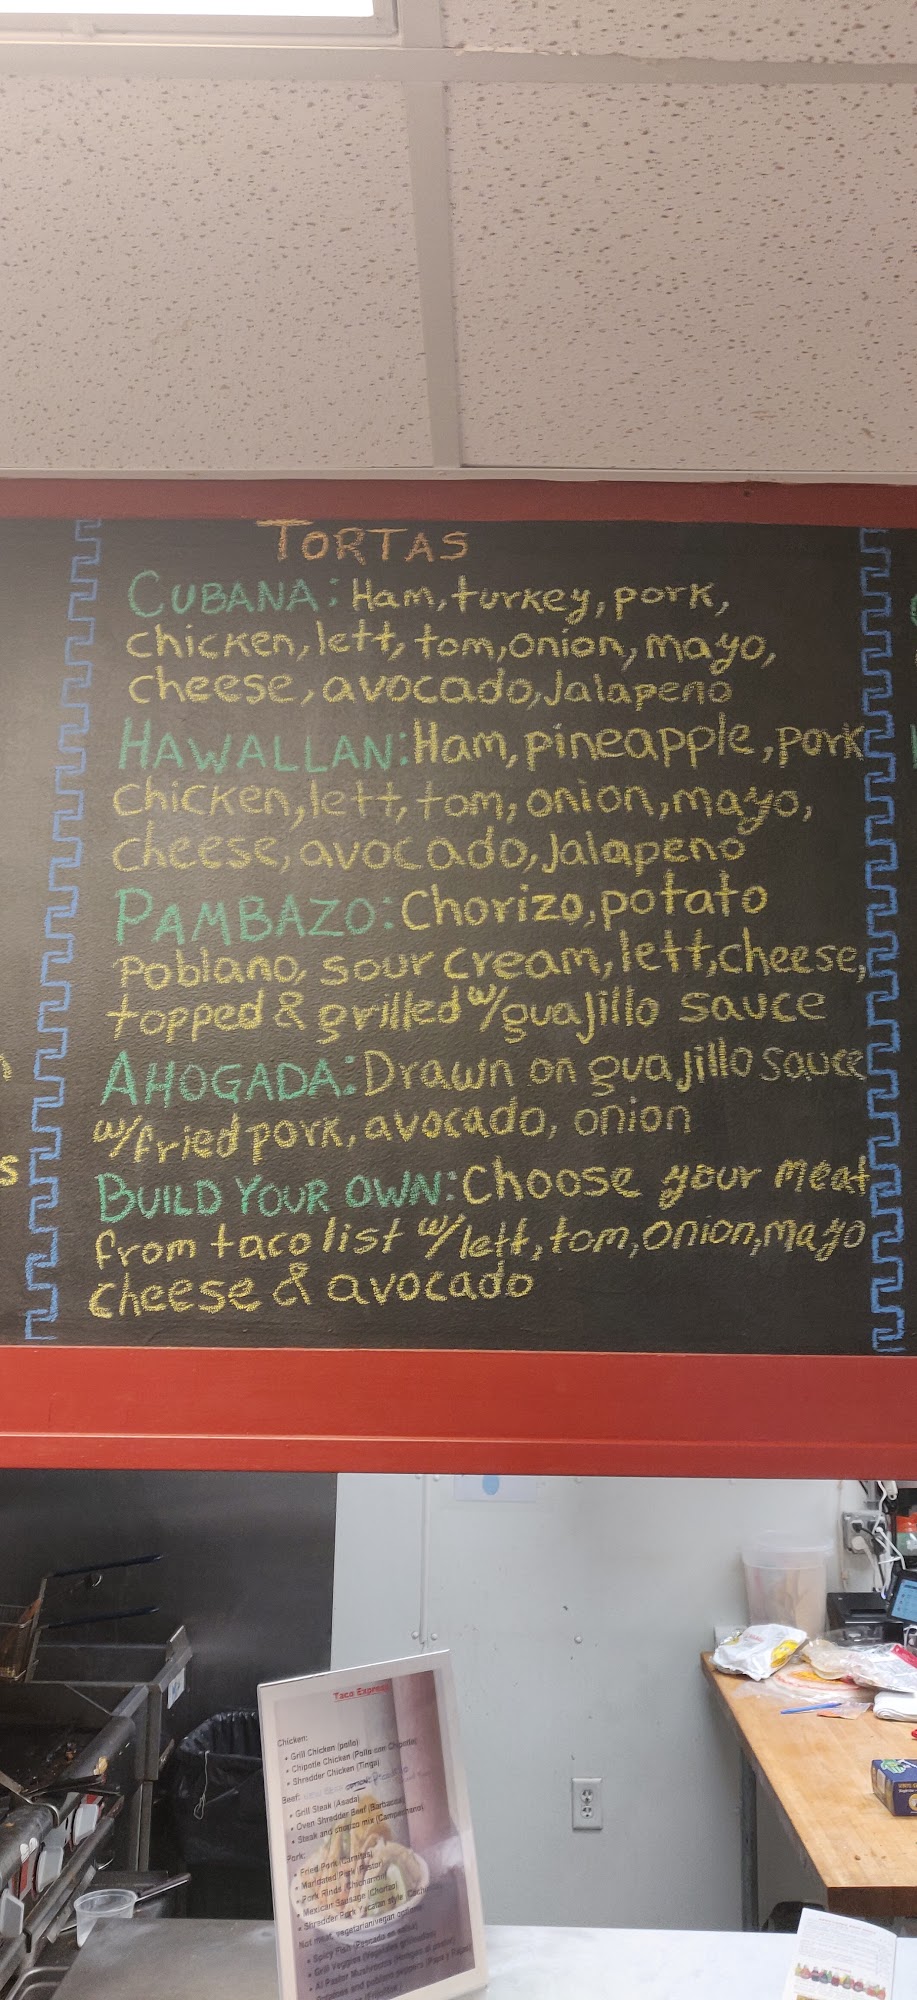 TORTAS
CUBANA: Ham, turkey, pork,
chicken, lett, tom, onion, mayo,
cheese, avocado, Jalapeno
HAWALLAN: Ham, pineapple, pork
chicken, lett, tom, onion, mayo,
cheese, avocado, Jalapeno
PAMBAZO: Chorizo, potato
poblano, sour cream, lett, cheese,
topped & grilled w/guajillo sauce
AHOGADA: Drawn on guajillo sauce
w/fried pork, avocado, onion
BUILD YOUR OWN: Choose your meat
from taco list w/lett, tom, onion, mayo
cheese & avocado
Taco Express
Chicken:
• Grill Chicken (pollo)
• Chipotle Chicken (Pollo con Chipotle)
• Shredder Chicken (Tinga)
Beef:
• Grill Steak (Asada)
• Oven Shredder Beef (Barbacoa)
• Steak and chorizo mix (Campechano)
Pork:
• Fried Pork (Carnitas)
• Marinated Pork (Pastor)
• Pork Rinds (Chicharron)
• Mexican Sausage (Chorizo)
• Shredder Pork Yucatan style
Not meat, vegetarian/vegan options
• Spicy Fish
• Grill Veggies
• Al Pastor Mushrooms